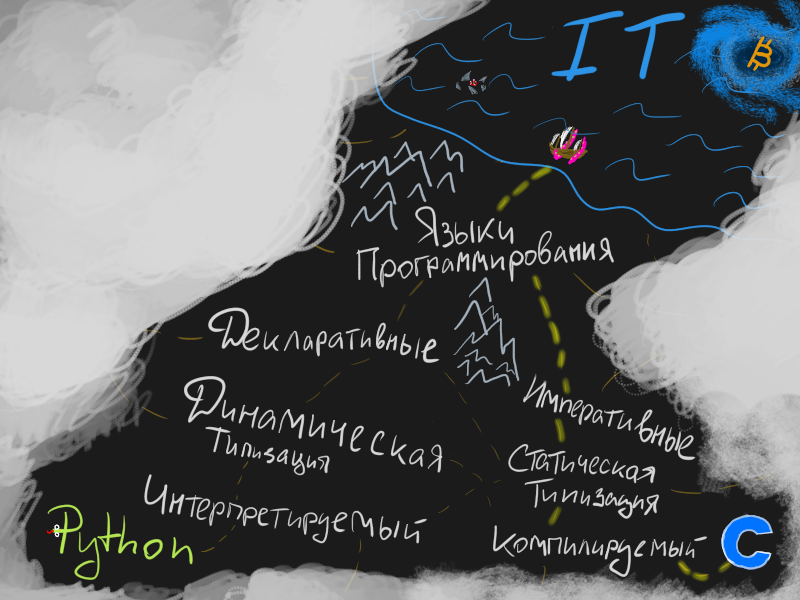 IT
Языки
Программирования
Декларативные
Императивные
Динамическая
Типизация
Статическая
Типизация
Интерпретируемый
Компилируемый
Python
C